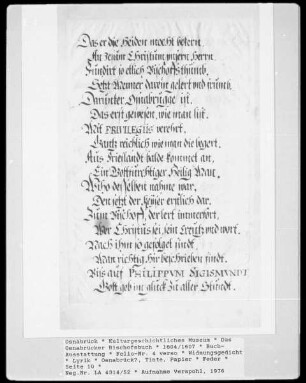 Das er die Heiden mocht bekern
An Jesum Christum unsern Herrn
Fundirt so etlich Bischoffsthumb,
Setzt Menner darein gelert und frumb,
Darunter Osnabrugge ist.
Das erst gewesen, wie man list.
Mit PRIVILEGIIS verehrt.
Gantz reichlich wie man die begert.
Aus Frieslandt balde kommet an,
Ein Gottfurchtiger Heilig Man,
Wiho desselben nahme war,
Den setzt der Keiser erstlich dar,
Zum Bischoff, der lert immerfort,
Wer Christus sei, sein Creutz und wort.
Nach ihm so gefolget sindt,
Man richtig hir beschrieben findt.
Bis auff PHILIPPUM SIGISMUNDT
Gott geb im glück zu aller Stundt.
Osnabrück * Kulturgeschichtliches Museum * Das
Osnabrücker Bischofsbuch * 1604/1607 * Buch-
Ausstattung * Folio-Nr. 4 verso * Widmungsgedicht
* Lyrik * Osnabrück?, Tinte, Papier * Feder *
Seite 10 *
Neg.Nr. LA 4914/52 * Aufnahme Verspohl, 1976